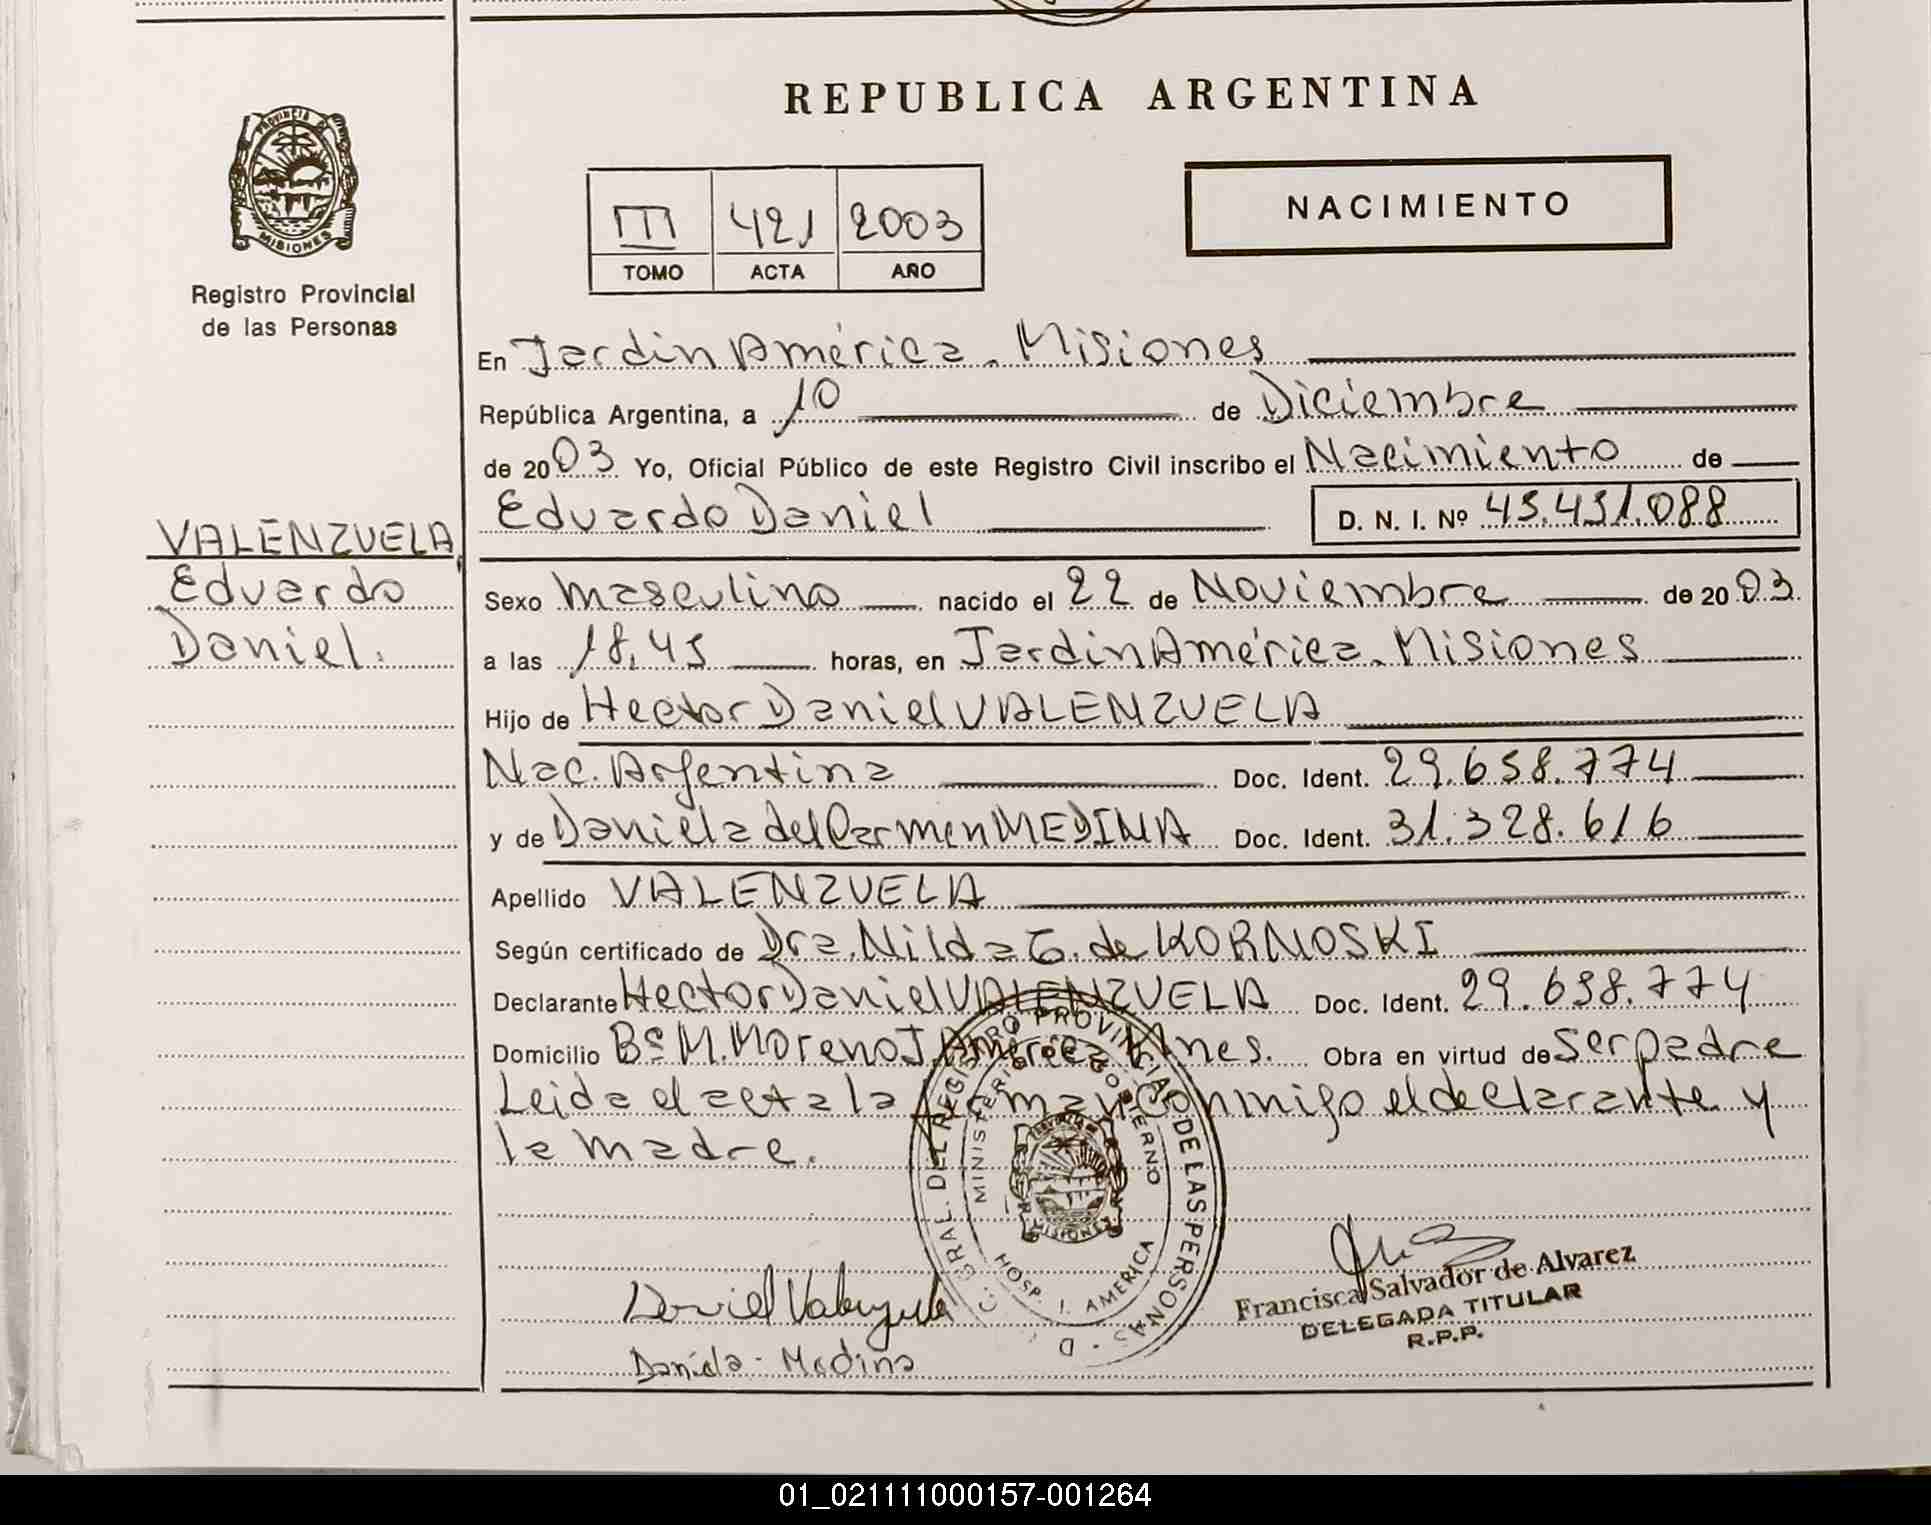 REPUBLICA ARGENTINA
PROVINCIA DE
MISIONES
Registro Provincial
de las Personas
III 421 2003
TOMO ACTA AÑO
NACIMIENTO
En Jardin América. Misiones
República Argentina, a 10 de Diciembre
de 2003 Yo, Oficial Público de este Registro Civil inscribo el Nacimiento de
Eduardo Daniel D. N. I. Nº 45.431.088
VALENZUELA,
Eduardo
Daniel.
Sexo masculino nacido el 22 de Noviembre de 2003.
a las 18,45 horas, en Jardin América. Misiones
Hijo de Hector Daniel VALENZUELA
Nac. Argentina Doc. Ident. 29.658.774
y de Daniela del Carmen MEDINA Doc. Ident. 31.328.616
Apellido VALENZUELA
Según certificado de Dra. Nilda G. de KORNOSKI
Declarante Hector Daniel VALENZUELA Doc. Ident. 29.658.774
Domicilio Bº M. Moreno J. América Mnes. Obra en virtud de ser padre
Leida el acta la firman conmigo el declarante y
la madre.
D. GRAL. DEL REGISTRO PROVINCIAL DE LAS PERSONAS
MINISTERIO DE GOBIERNO
MISIONES
HOSP. J. AMERICA
Daniel Valenzuela
Daniela - Medina
Francisca Salvador de Alvarez
DELEGADA TITULAR
R.P.P.
01_021111000157-001264